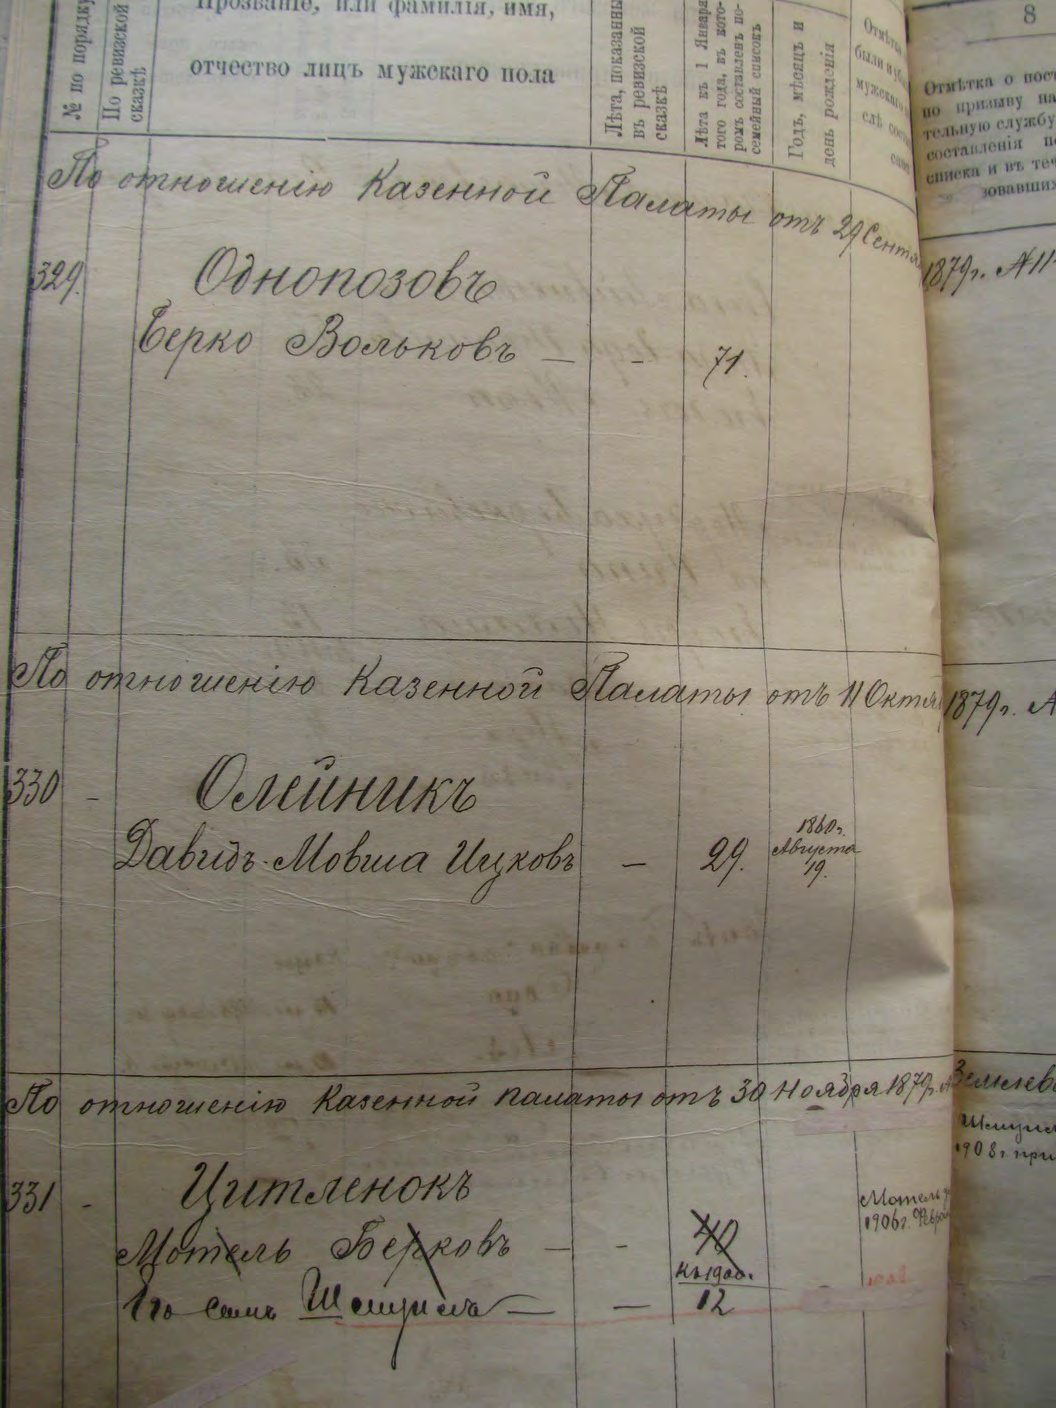 № по порядку
По ревизской сказкѣ
Прозваніе, или фамилія, имя,
отчество лицъ мужскаго пола
Лѣта, показанны
въ ревизской
сказкѣ
Лѣта къ 1 Января
того года, въ кото-
ромъ составленъ по-
семейный списокъ
Годъ, мѣсяцъ и
день рожденія
Отмѣтка
были и уб
мужскаго
слѣ сост
спис
8
Отмѣтка о пост
по призыву на
тельную службу
составленія п
списка и въ те
зовавших
По отношенію Казенной Палаты отъ 29 Сентя 1879г. №11
329. Однопозовъ
Берко Вольковъ — - 71.
По отношенію Казенной Палаты отъ 11 Октяб 1879г. №
330 - Олейникъ
Давидъ-Мовша Ицковъ — 29. 1860г.
Августа
19.
По отношенію Казенной палаты отъ 30 Ноября 1879г. №
331 - Цитленокъ
Мотель Берковъ — - 40
Мотель
1906г. Февра
къ 1900г.
Его сынъ Шмуилъ — — 12
1908г. при